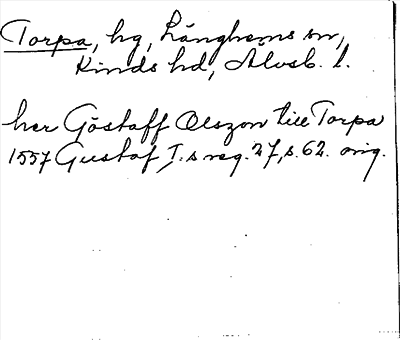 Torpa, hg, Länghems sn,
Kinds hd, Älvsb. l.
her Göstaff Olszon till Torpa
1557 Gustaf I.s reg. 27, s. 62. orig.